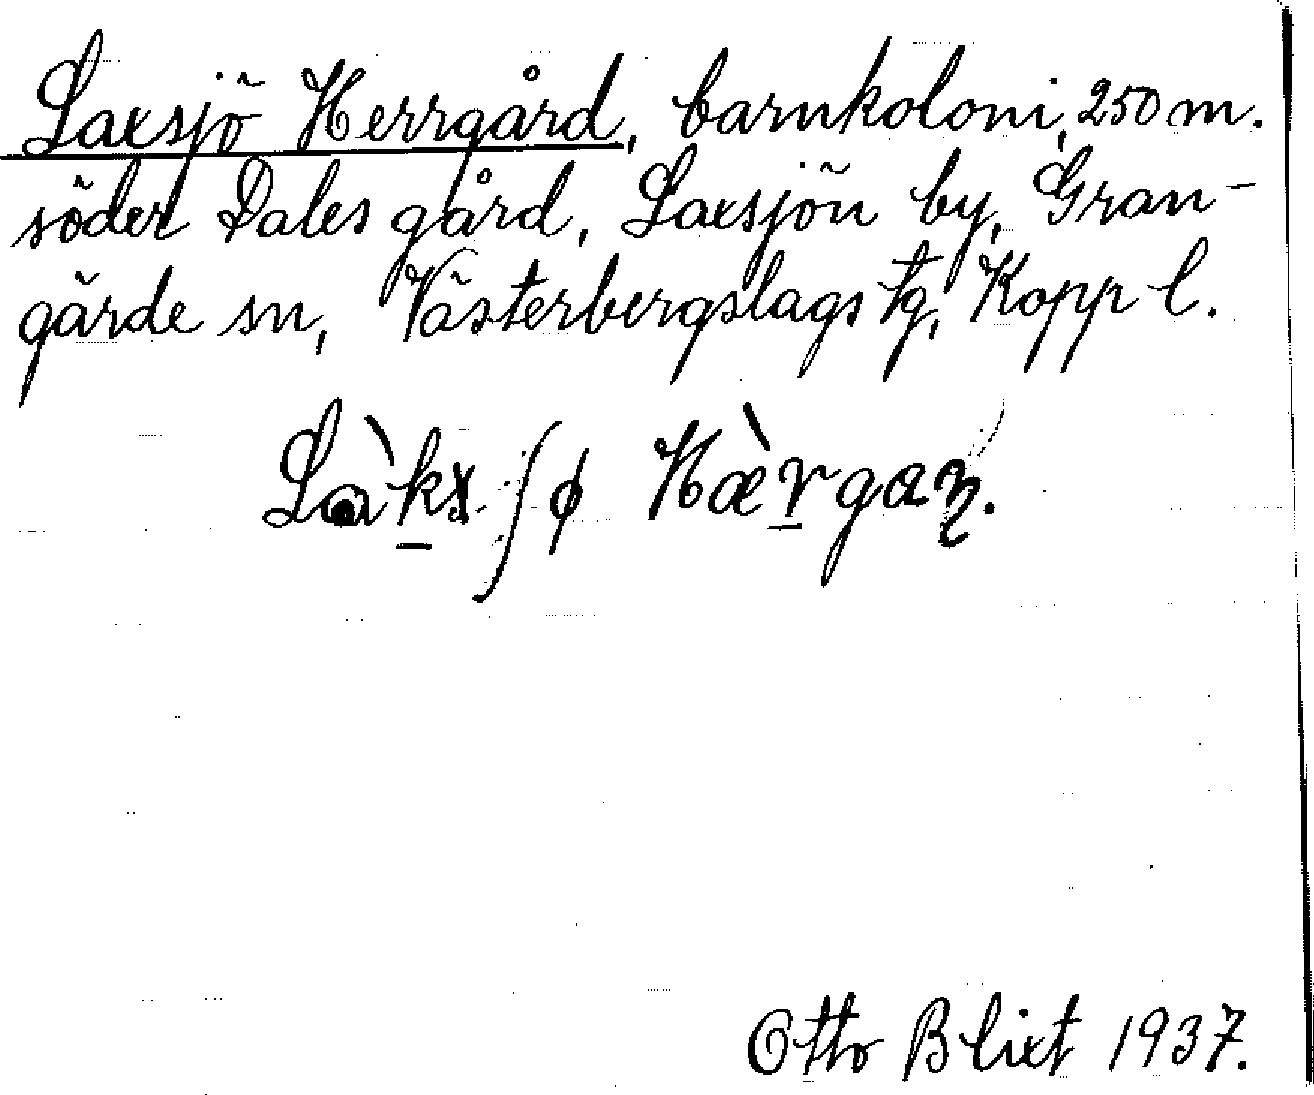 Laxsjö Herrgård, barnkoloni, 250 m.
söder Dales gård, Laxsjön by, Gran-
gärde sn, Västerbergslags tg, Kopp l.
Làksʃø Hærgaɽ.
Otto Blixt 1937.